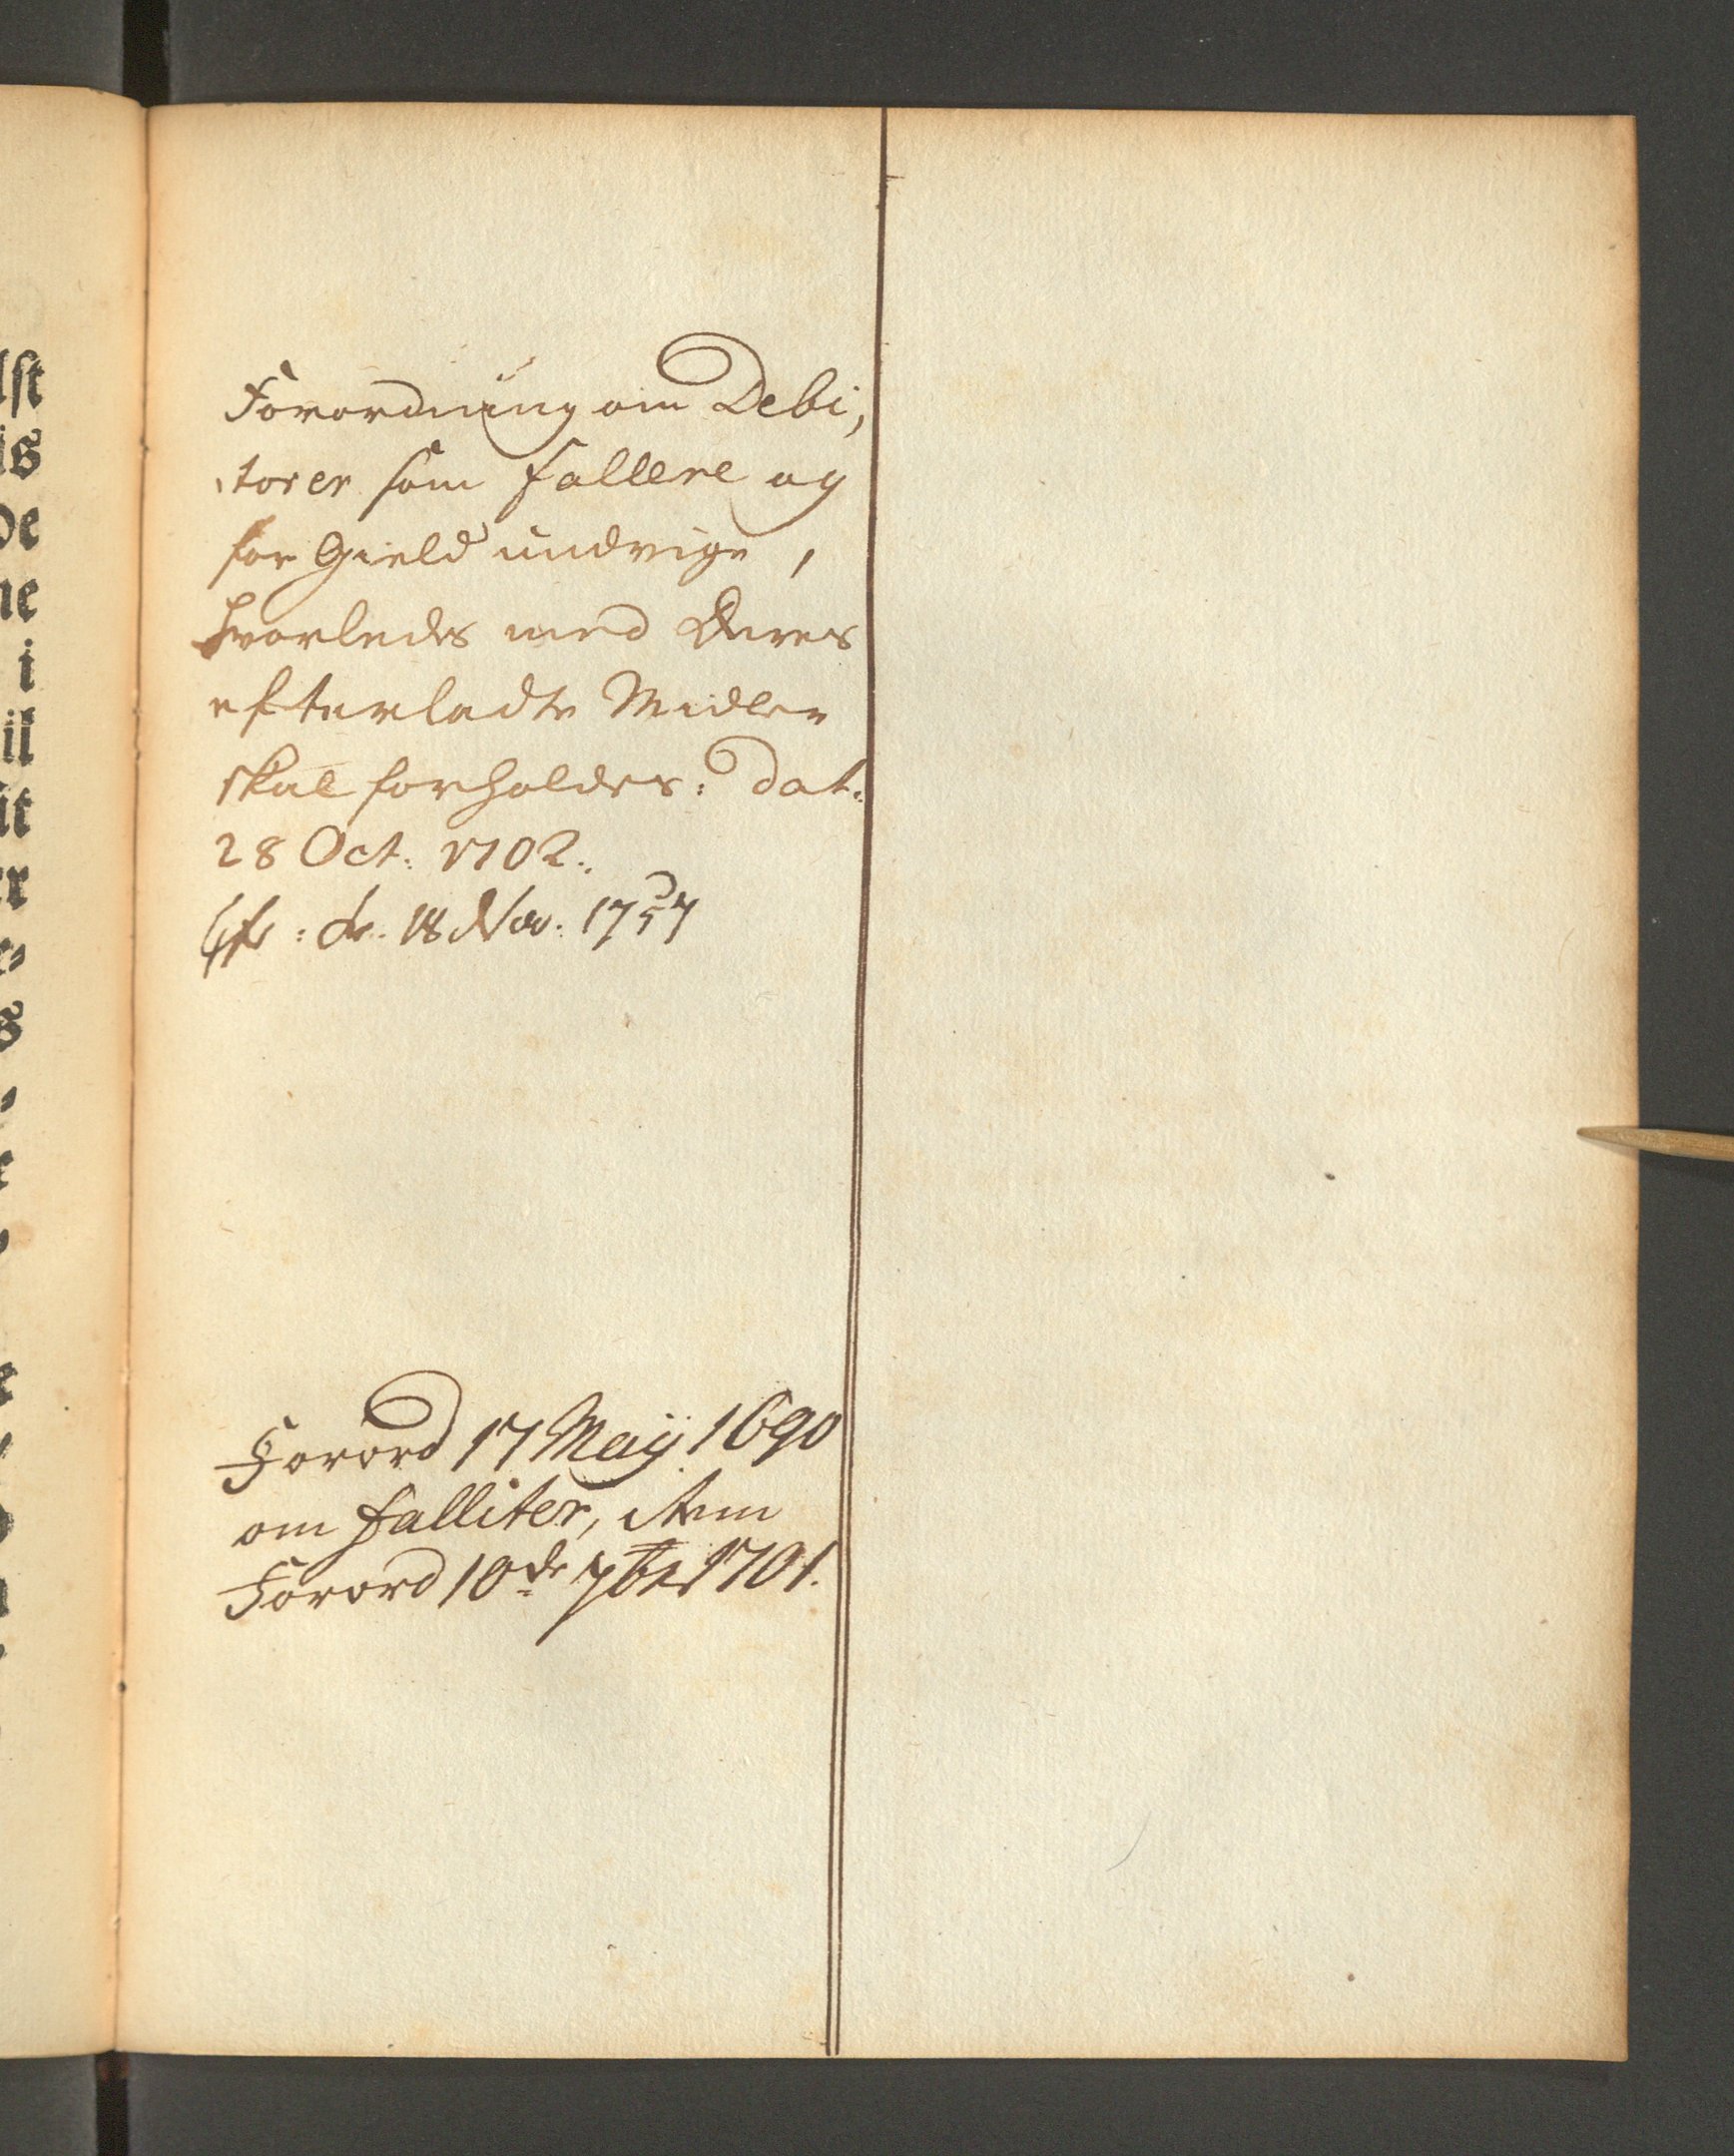 Forordning om Debi,
torer som fallere og
for Gield undvige,
hvorledes med Deres
efterladte Midler
skal forholdes: dat:
28 Oct: 1702.
Cfr: Fr. 18 Nov. 1757
Forord 17 Maij 1690
om falliter, item
Forord 10de 7br 1701.